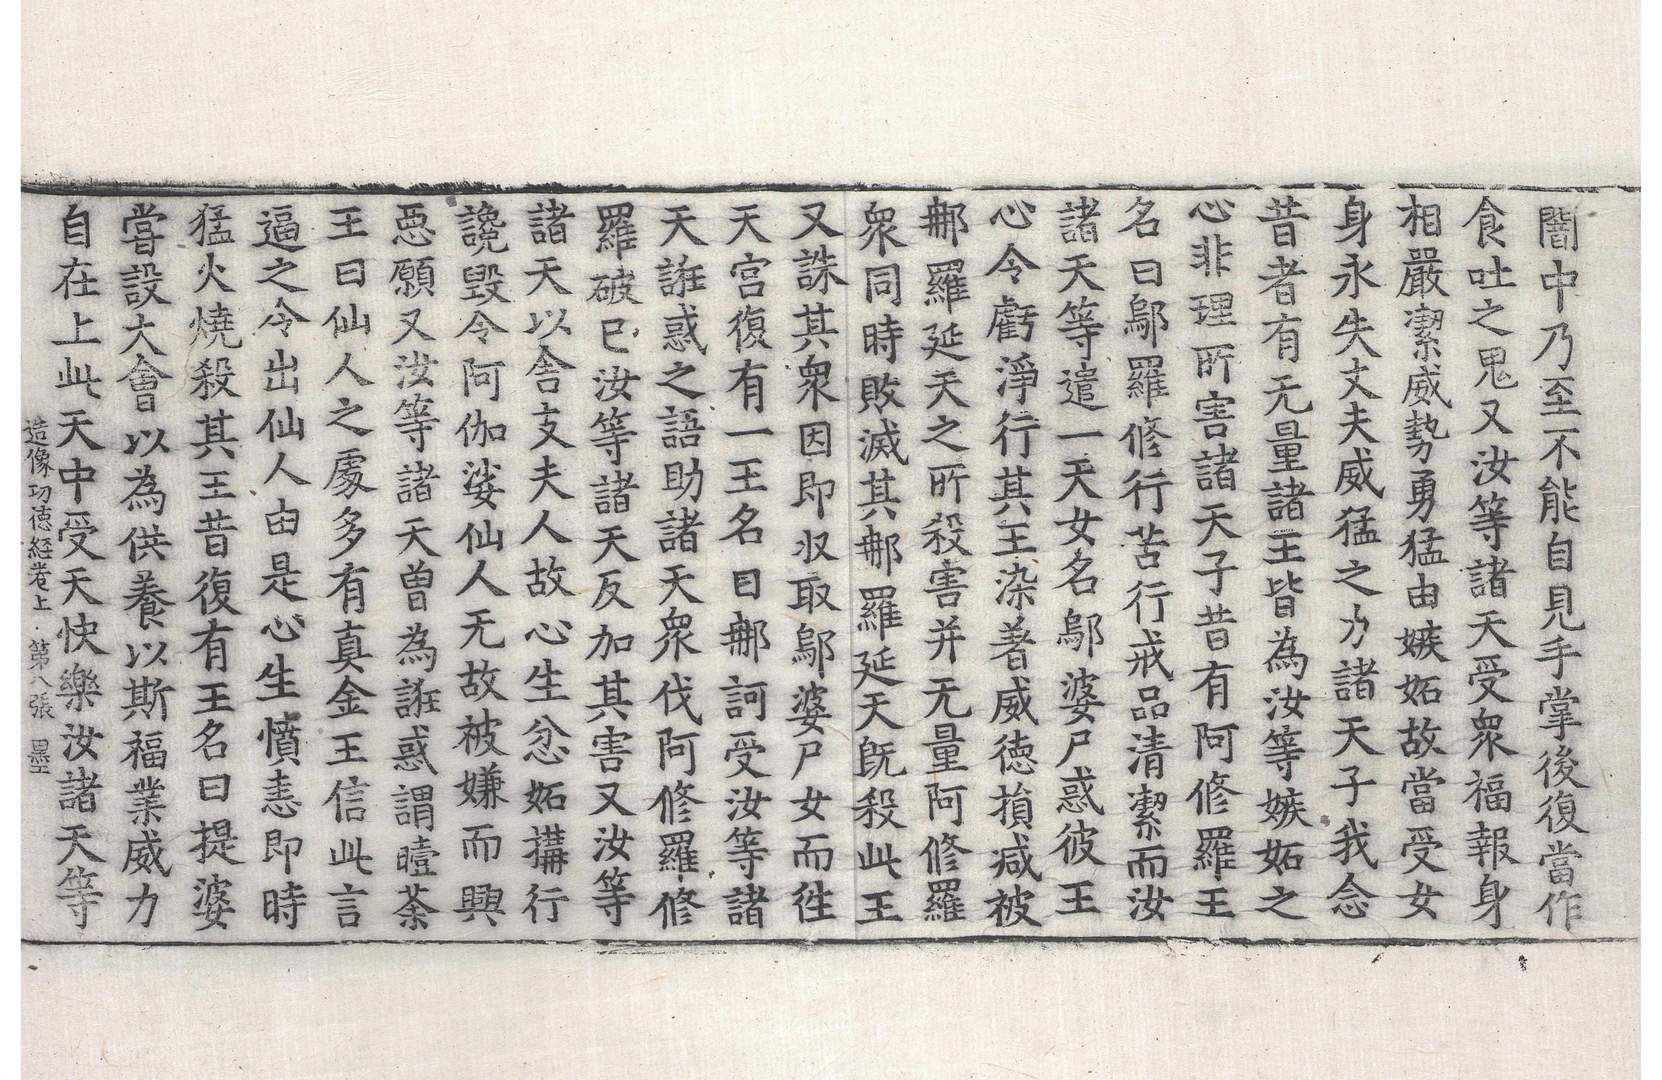 闇中乃至不能自見手掌後復當作
食吐之鬼又汝等諸天受衆福報身
相嚴潔威勢勇猛由嫉妬故當受女
身永失丈夫威猛之力諸天子我念
昔者有无量諸王皆為汝等嫉妬之
心非理所害諸天子昔有阿修羅王
名曰鄔羅修行苦行戒品清潔而汝
諸天等遣一天女名鄔婆尸惑彼王
心令虧淨行其王染著威德損減被
那羅延天之所殺害并无量阿修羅
衆同時敗滅其那羅延天旣殺此王
又誅其衆因即収取鄔婆尸女而徃
天宮復有一王名曰那訶受汝等諸
天誑惑之語助諸天衆伐阿修羅修
羅破已汝等諸天反加其害又汝等
諸天以舍支夫人故心生忿妬搆行
讒毀令阿伽娑仙人无故被嫌而興
惡願又汝等諸天曾為誑惑謂曀荼
王曰仙人之處多有真金王信此言
逼之令出仙人由是心生憤恚即時
猛火燒殺其王昔復有王名曰提婆
嘗設大會以為供養以斯福業威力
自在上此天中受天快樂汝諸天等
造像功德経卷上 第八張 墨